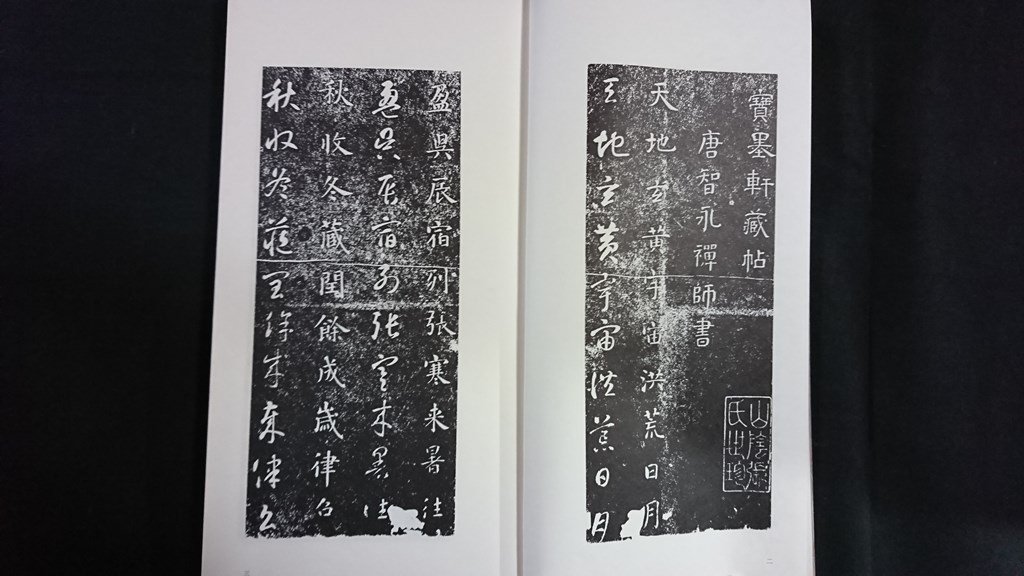 寶墨軒藏帖
唐智永禪師書
山陰
氏世
天地玄黄宇宙洪荒日月
天地玄黄宇宙洪荒日月
二
盈昃辰宿列張寒来暑往
盈昃辰宿列張寒来暑往
秋收冬藏閏餘成歲律召
秋收冬藏閏餘成歲律召